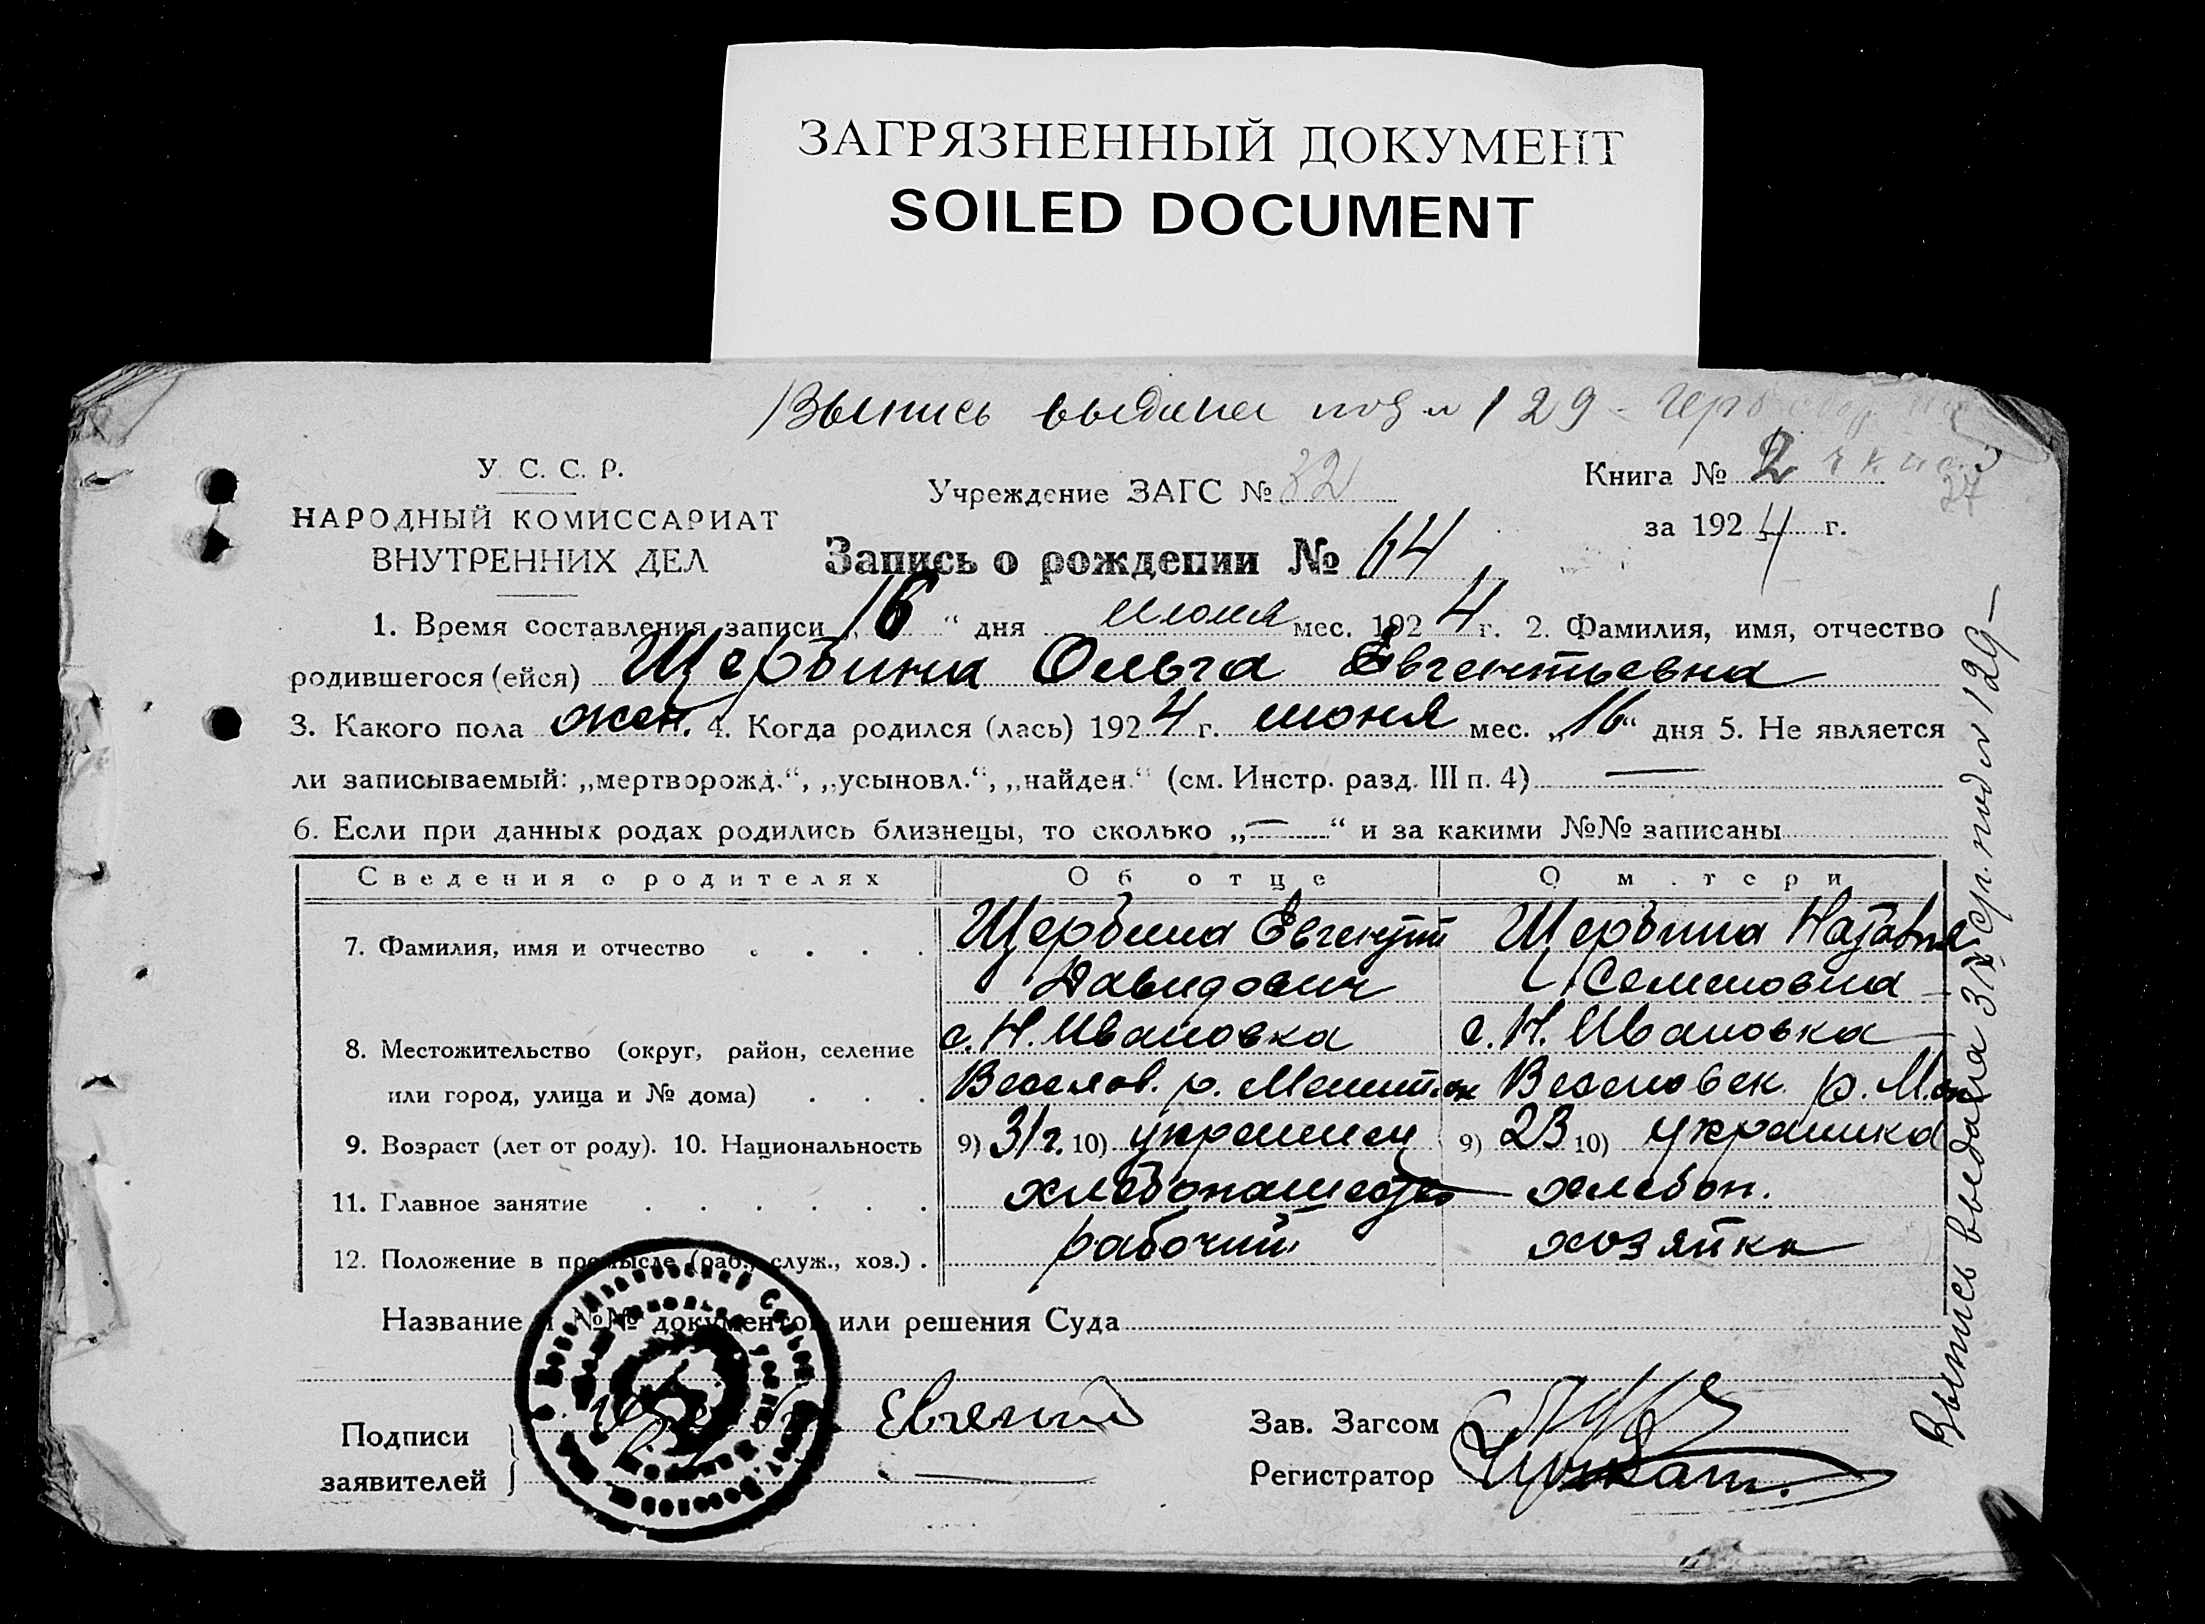 ЗАГРЯЗНЕННЫЙ ДОКУМЕНТ
SOILED DOCUMENT
Выпись выдана под № 129 -
У. С. С. Р.
НАРОДНЫЙ КОМИССАРИАТ
ВНУТРЕННИХ ДЕЛ
Учреждение ЗАГС № 32
Книга № 2
за 1924 г.
Запись о рождении № 64
1. Время составления записи „16“ дня июня мес. 1924 г. 2. Фамилия, имя, отчество
родившегося (ейся) Щербина Ольга Евгентьевна
3. Какого пола жен. 4. Когда родился (лась) 1924 г. июня мес. „16“ дня 5. Не является
ли записываемый: „мертворожд.“, „усыновл.“, „найден.“ (см. Инстр. разд. III п. 4) —
6. Если при данных родах родились близнецы, то сколько „—“ и за какими №№ записаны
Сведения о родителях Об отце О м.тери
7. Фамилия, имя и отчество . . . . Щербина Евгентий Щербина Наталия
Давидович Семеновна
8. Местожительство (округ, район, селение с. Н. Ивановка с. Н. Ивановка
или город, улица и № дома) . . . Веселов. р. Веселовск. р.
9. Возраст (лет от роду). 10. Национальность 9) 31 г. 10) украинец 9) 23 10) украинка
11. Главное занятие . . . . . . хлебопашество хлебоп.
12. Положение в промысле (раб., служ., хоз.) . рабочий хозяйка
Название и №№ документов или решения Суда
Подписи
заявителей
Зав. Загсом
Регистратор
Выпись выдана под № 129 —